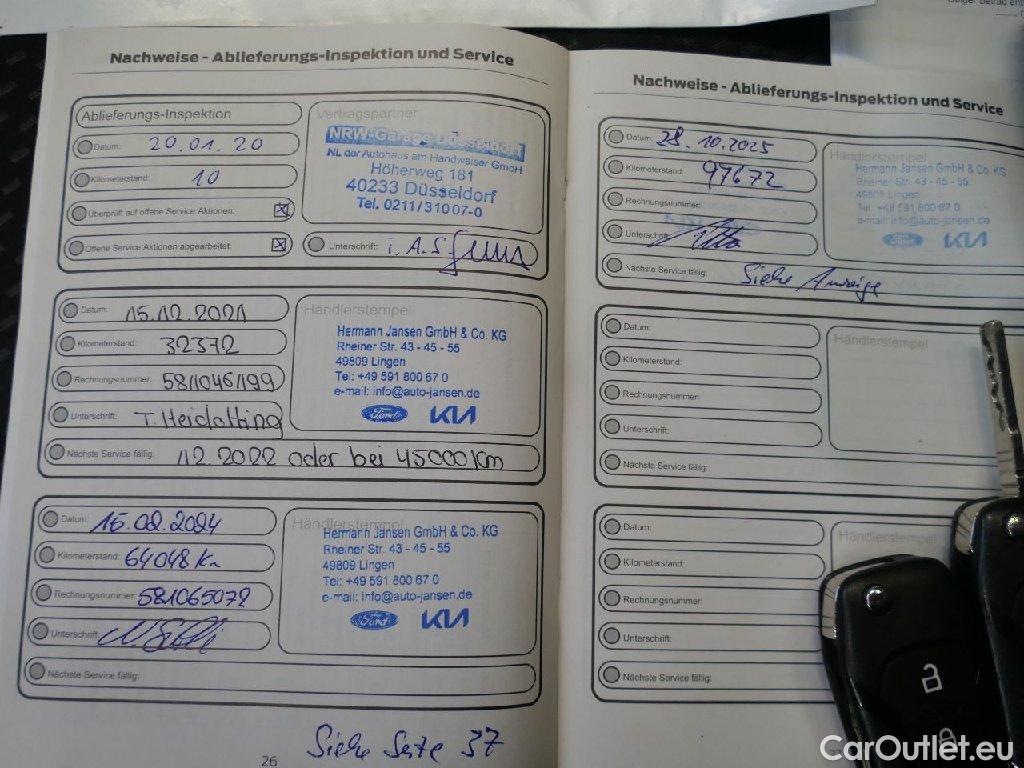 Nachweise - Ablieferungs-Inspektion und Service
Ablieferungs-Inspektion
Datum: 20.01.20
Kilometerstand: 10
Überprüft auf offene Service Aktionen: ☒
Offene Service Aktionen abgearbeitet: ☒
Vertragspartner
NRW-Garage Düsseldorf
NL der Autohaus am Handweiser GmbH
Höherweg 181
40233 Düsseldorf
Tel. 0211/31007-0
Unterschrift: i.A.
Datum: 15.12.2021
Kilometerstand: 32372
Rechnungsnummer: 581046199
Unterschrift:
Nächste Service fällig: 12.2022 oder bei 45000 km
Händlerstempel
Hermann Jansen GmbH & Co. KG
Rheiner Str. 43 - 45 - 55
49809 Lingen
Tel.: +49 591 800 67 0
e-mail: info@auto-jansen.de
Ford KIA
Datum: 15.02.2024
Kilometerstand: 64048 Km
Rechnungsnummer: 581065072
Unterschrift:
Nächste Service fällig:
Händlerstempel
Hermann Jansen GmbH & Co. KG
Rheiner Str. 43 - 45 - 55
49809 Lingen
Tel.: +49 591 800 67 0
e-mail: info@auto-jansen.de
Ford KIA
Siehe Seite 37
26
Nachweise - Ablieferungs-Inspektion und Service
Datum: 28.10.2025
Kilometerstand: 97672
Rechnungsnummer:
Unterschrift:
Nächste Service fällig: Siehe Anzeige
Händlerstempel
Hermann Jansen GmbH & Co. KG
Rheiner Str. 43 - 45 - 55
49809 Lingen
Tel.: +49 591 800 67 0
e-mail: info@auto-jansen.de
Ford KIA
Datum:
Kilometerstand:
Rechnungsnummer:
Unterschrift:
Nächste Service fällig:
Händlerstempel
Datum:
Kilometerstand:
Rechnungsnummer:
Unterschrift:
Nächste Service fällig:
Händlerstempel
CarOutlet.eu